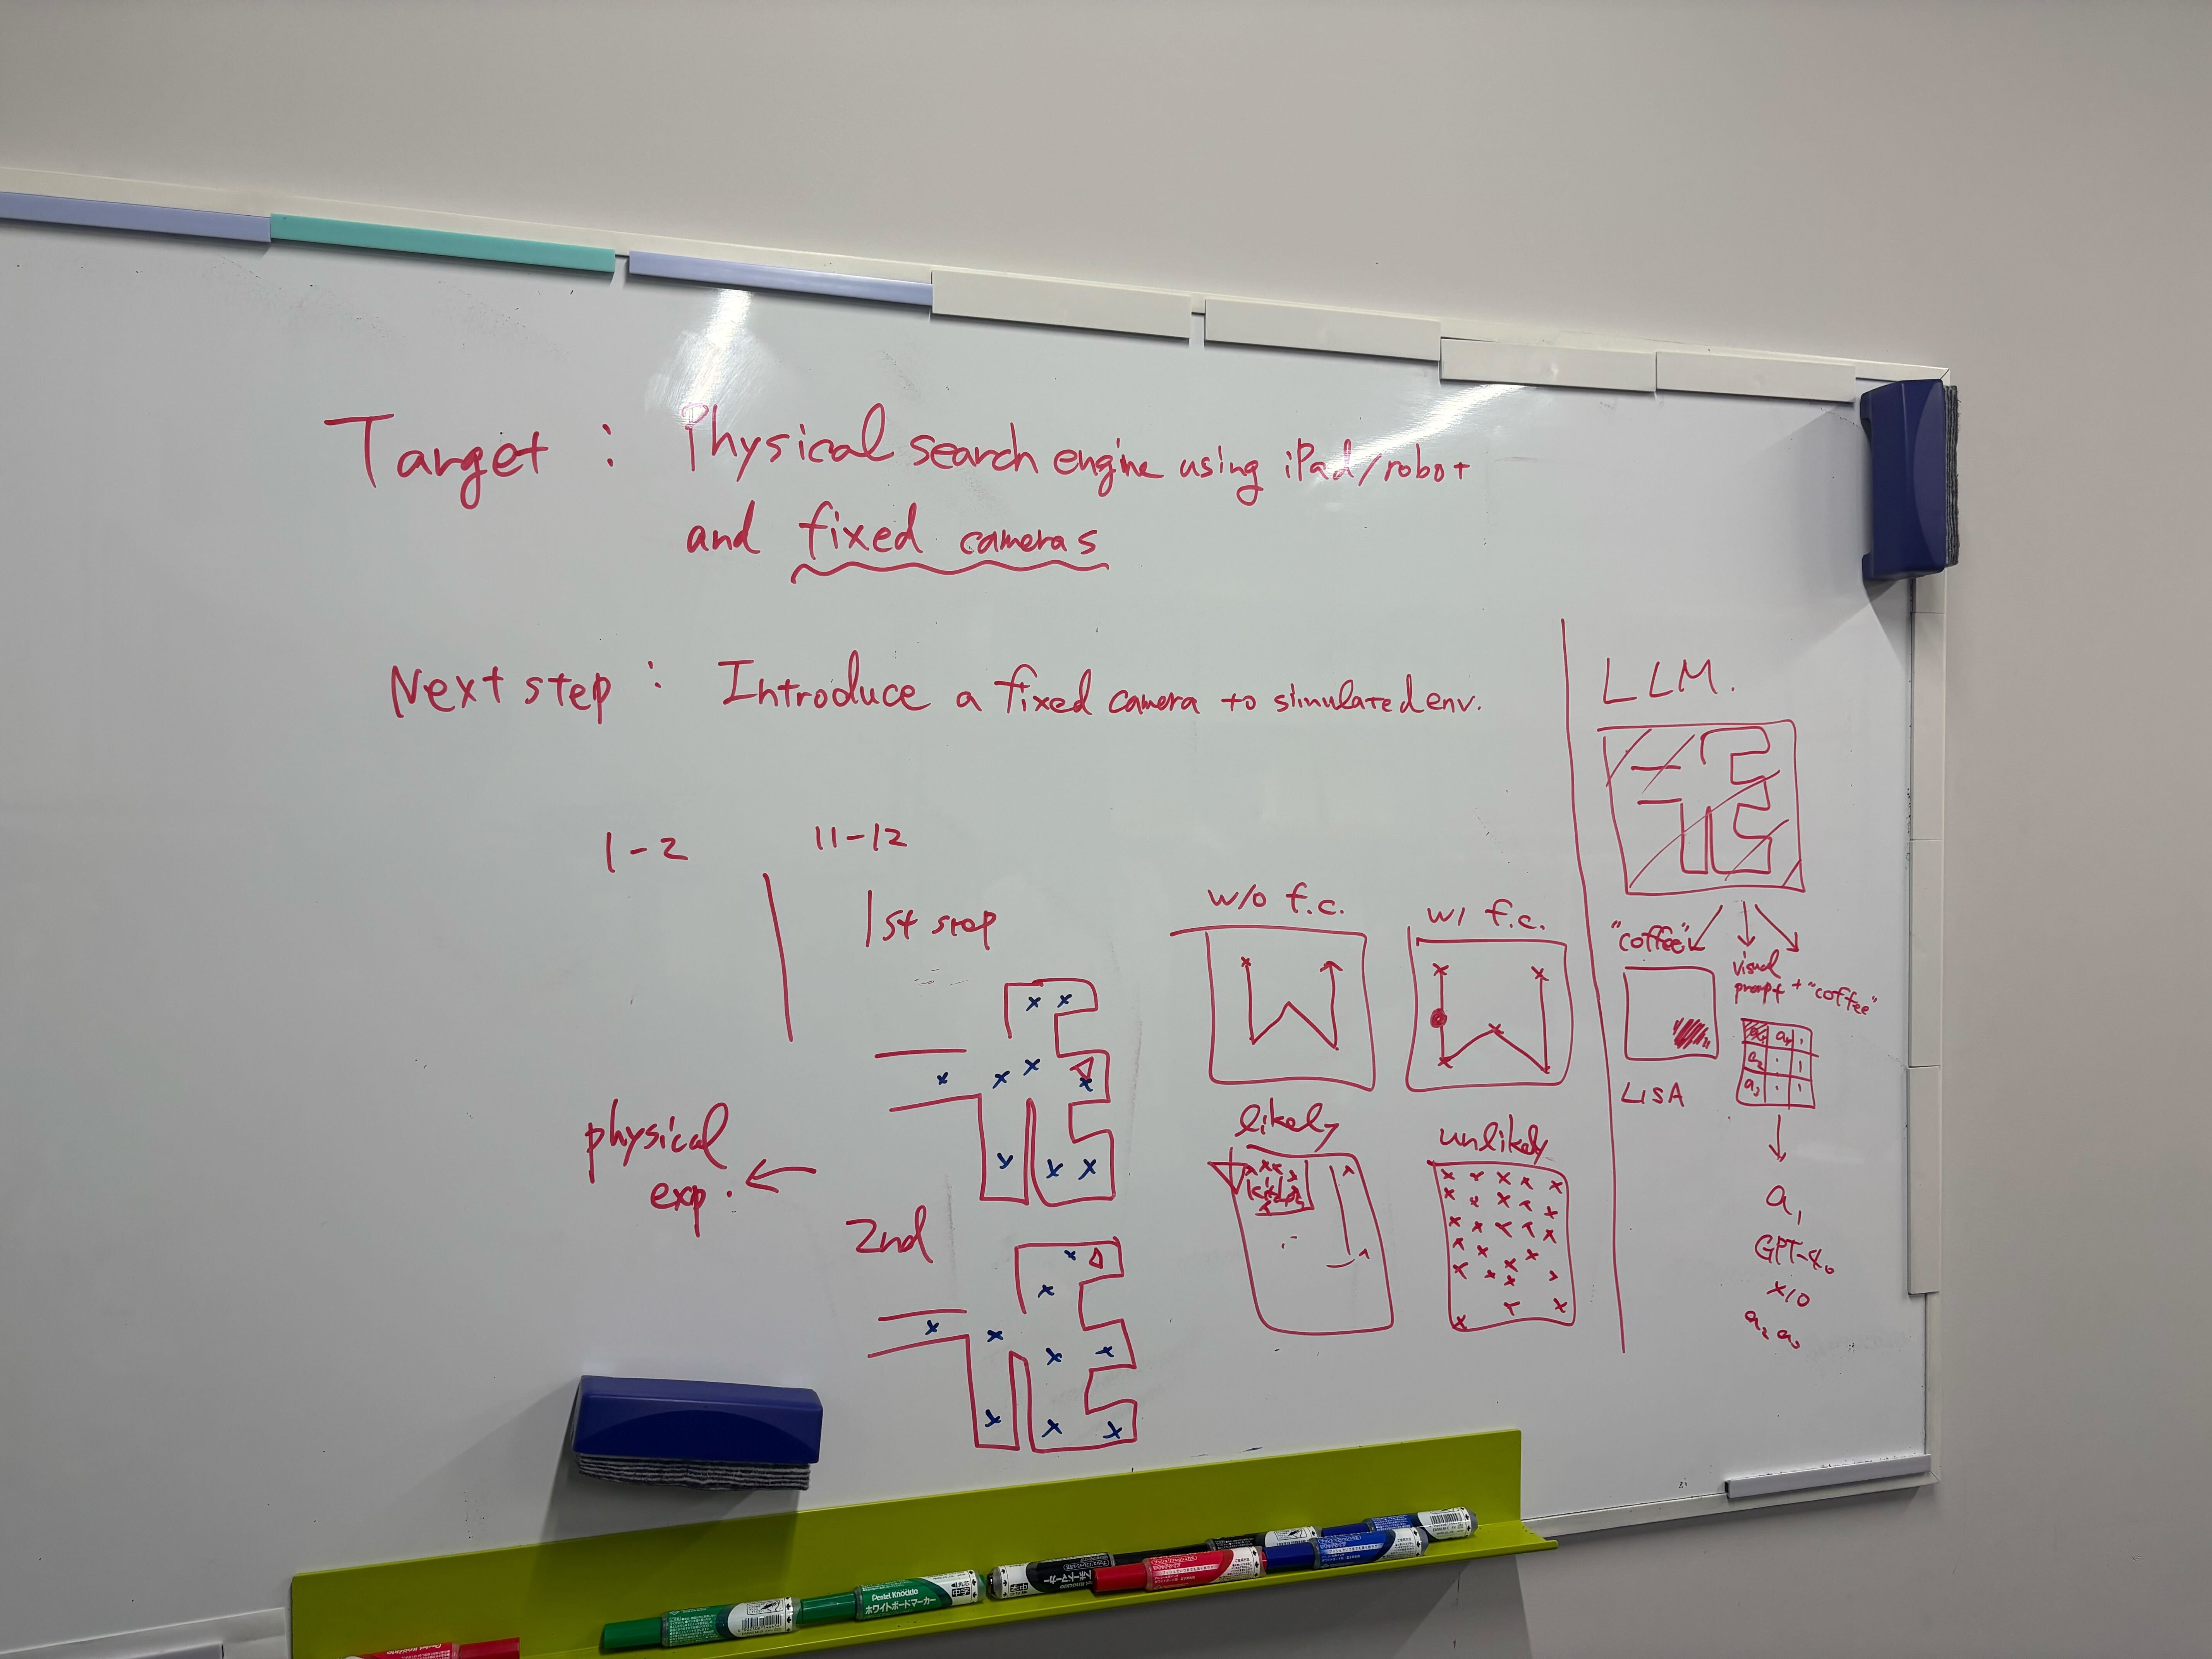 Target : Physical search engine using iPad/robot
and fixed cameras
Next step : Introduce a fixed camera to simulated env.
1-2
11-12
1st step
physical
exp.
2nd
w/o f.c.
w/ f.c.
likely
unlikely
kitchen
LLM.
"coffee"
visual
prompt + "coffee"
LISA
a2
a3
a1
GPT-4o
x10
a2
Pentel Knockle
ホワイトボードマーカー